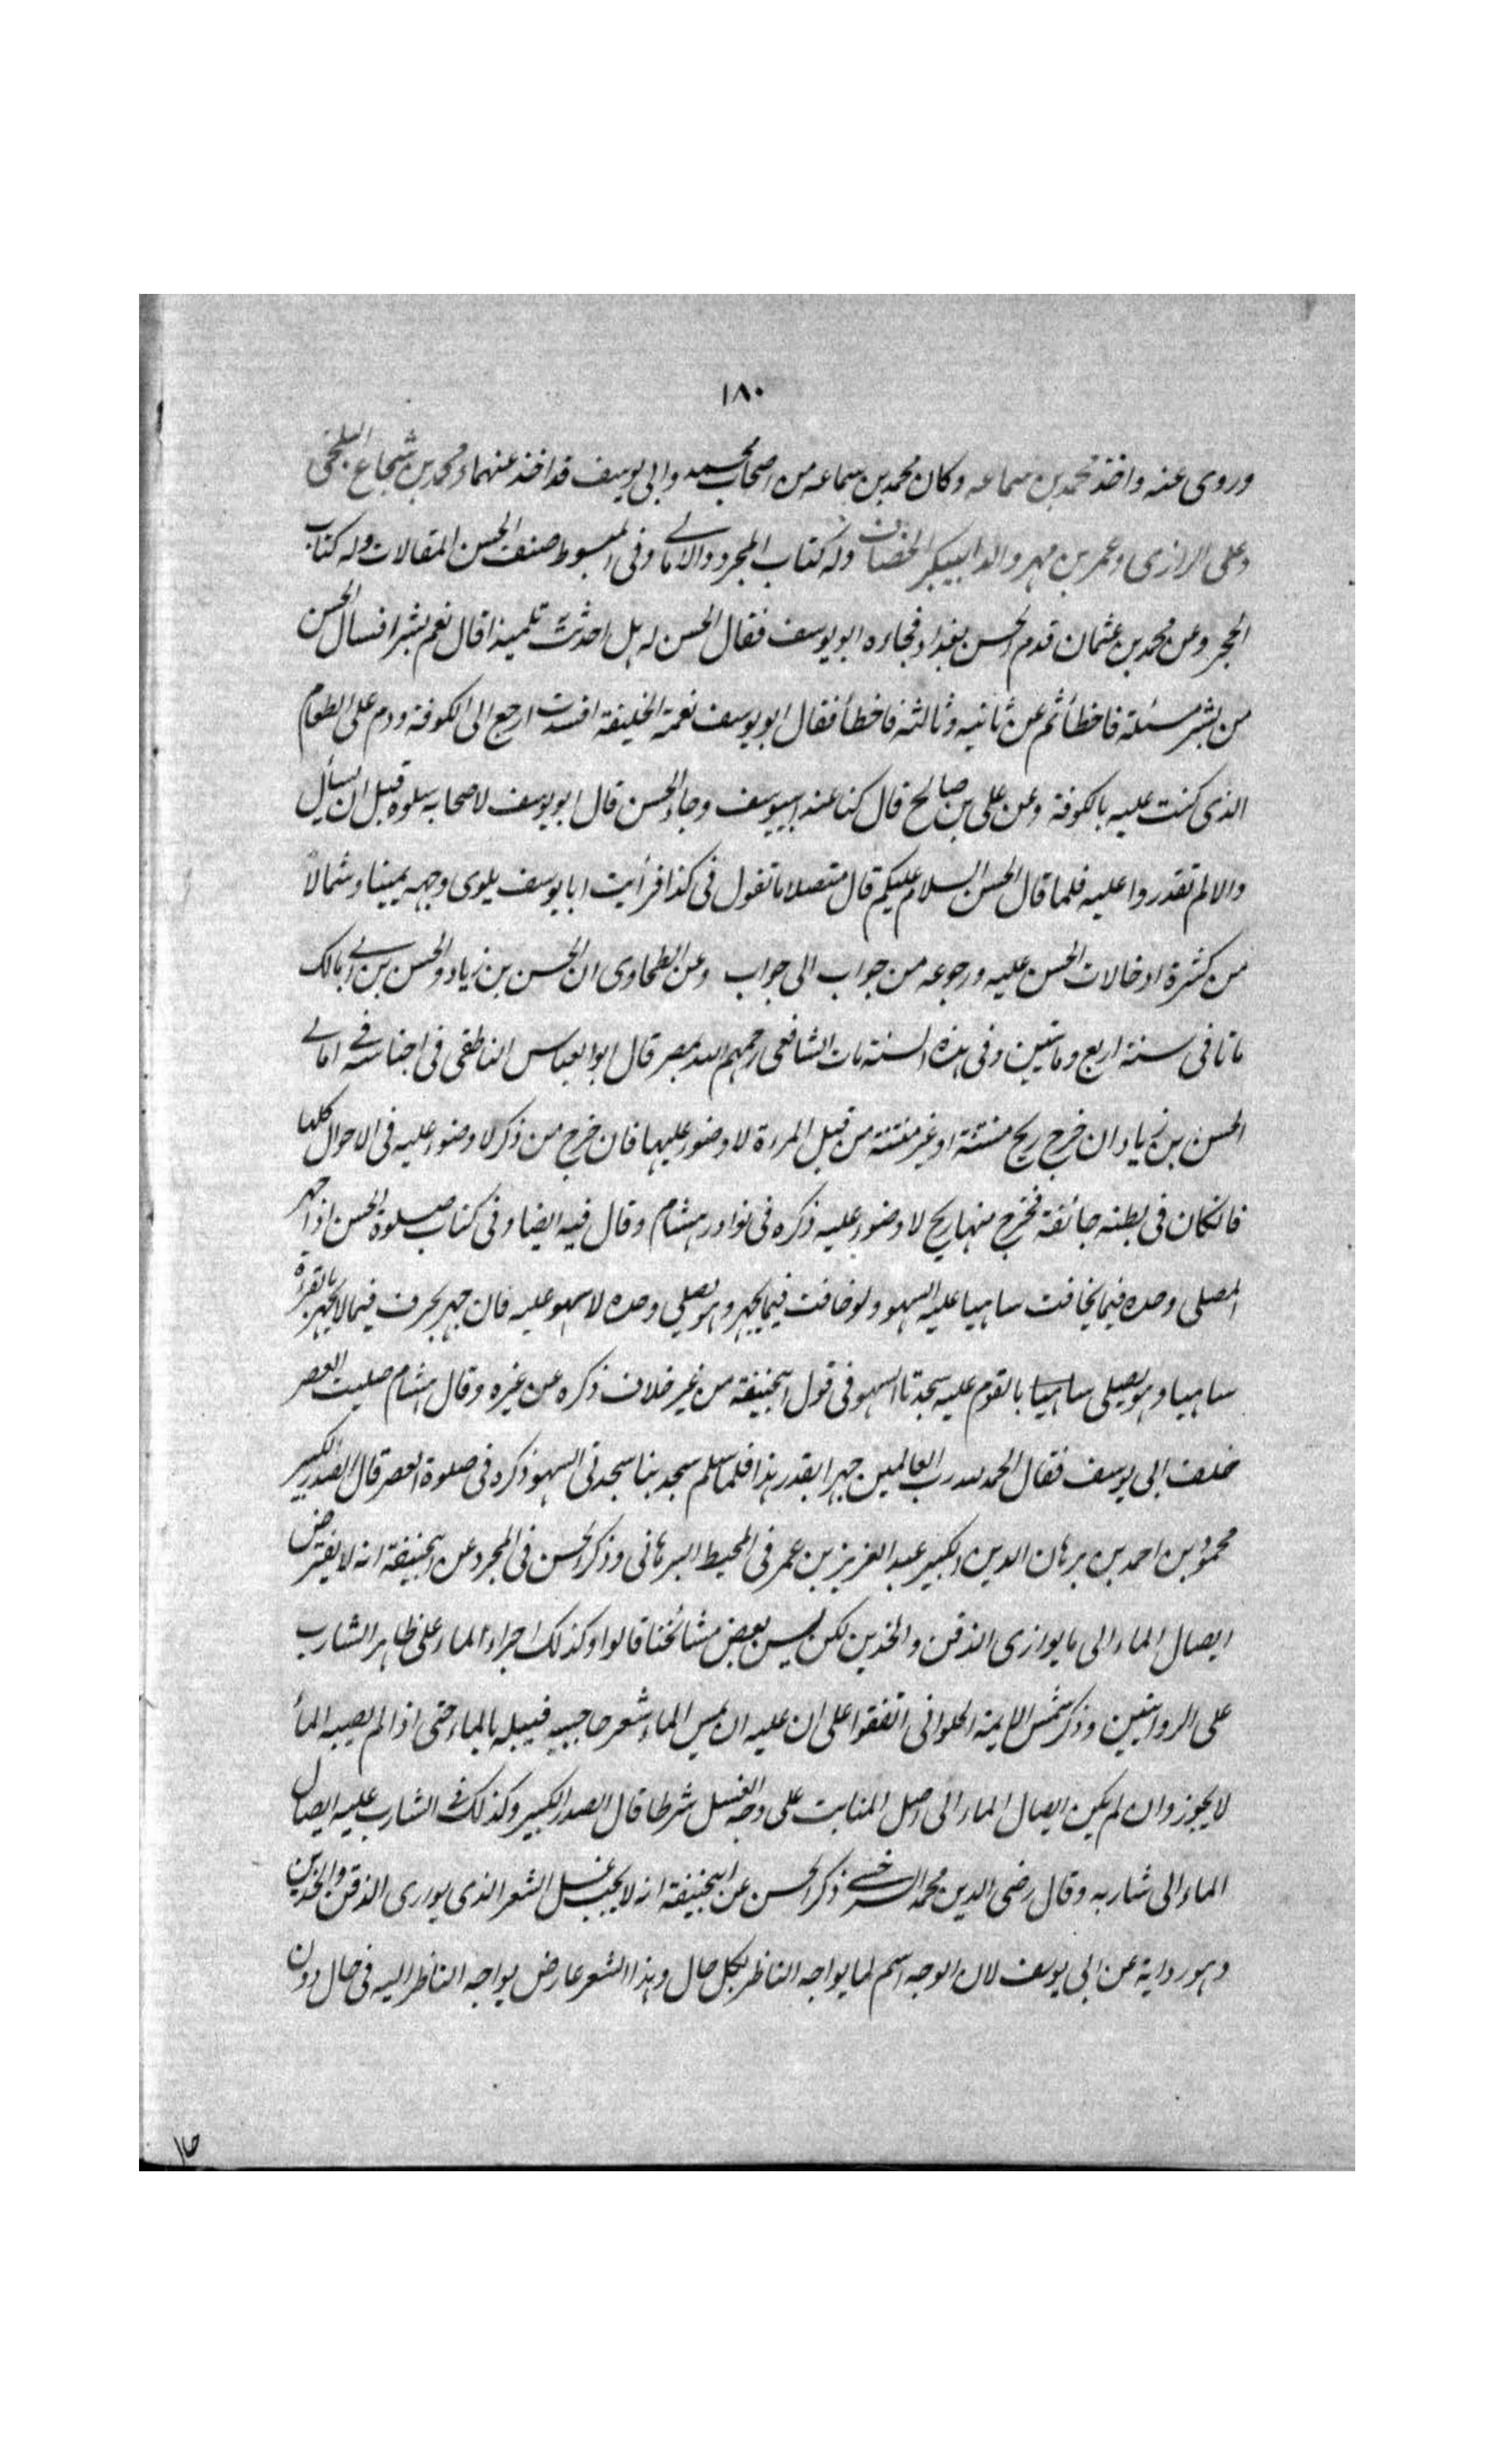 ١٨٠
وروى عنه واخذ محمد بن سماعه وكان محمد بن سماعه من اصحاب محمد وابى يوسف قد اخذ عنهما ومحمد بن شجاع البلخى
وعلى الرازى وعمر بن مهير والد ابيبكر الخصاف وله كتاب المجرد والامالى وفى المبسوط صنف الحسن المقالات وله كتاب
المجرد وعن محمد بن عثمان قدم الحسن بغداد فجاءه ابو يوسف فقال الحسن له هل احدثت تلميذا قال نعم بشرا فسال الحسن
من بشر مسئلة فاخطأ ثم عن ثانيه وثالثه فاخطأ فقال ابو يوسف نعمة الخليفة افسدت ارجع الى الكوفة ودم على الطعام
الذى كنت عليه بالكوفة وعن على بن صالح قال كنا عند ابييوسف وجاء الحسن قال ابو يوسف لاصحابه سلوه قبل ان يسأل
والا لم تقدروا عليه فلما قال الحسن السلام عليكم قال متصلا ما تقول فى كذا فرأيت ابا يوسف يلوى وجهه يمينا وشمالاً
من كثرة ادخالات الحسن عليه ورجوعه من جواب الى جواب وعن الطحاوى ان الحسن بن زياد والحسن بن ابى مالك
ماتا فى سنة اربع ومايتين وفى هذه السنة مات الشافعى رحمهم الله بمصر قال ابو العباس الناطفى فى اجناسه فى امالى
الحسن بن زياد ان خرج ريح منتنة او غير منتنة من قبل المرءة لا وضوء عليها فان خرج من ذكر لا وضوء عليه فى الاحوال كلها
فانكان فى بطنه جائفة فخرج منها ريح لا وضوء عليه ذكره فى نوادر هشام وقال فيه ايضا وفى كتاب صلوة الحسن اذا جهر
المصلى وحده فيما يخافت ساهيا عليه السهو ولو خافت فيما يجهر وهو يصلى وحده لا سهو عليه فان جهر بحرف فيما لا يجهر بالقرءة
ساهيا وهو يصلى ساهيا بالقوم عليه سجدتا السهو فى قول ابيحنيفة من غير خلاف ذكره عن غيره وقال هشام صليت العصر
خلف ابى يوسف فقال الحمد لله رب العالمين جهرا بقدر هذا فلما سلم سجد بنا سجدتى السهو ذكره فى صلوة العصر قال الصدر الكبير
محمود بن احمد بن برهان الدين الكبير عبد العزيز بن عمر فى المحيط البرهانى وذكر الحسن فى المجرد عن ابيحنيفة انه لا يفترض
ايصال الماء الى ما يوازى الذقن والخدين لكن يسن بعض مشائخنا قالوا وكذلك اجراء الماء على ظاهر الشارب
على الروايتين وذكر شمس الايمة الحلوانى اتفقوا على ان عليه ان يمس الماء شعر حاجبيه فيبله بالماء حتى اذا لم يصبه المأ
لا يجوز وان لم يكن ايصال الماء الى اصل المنابت على وجه الغسل شرطا قال الصدر الكبير وكذلك فى الشارب عليه ايصال
الماء الى شاربه وقال رضى الدين محمد السرخسى ذكر الحسن عن ابيحنيفة انه لا يجب غسل الشعر الذى يوارى الذقن والخدين
وهو رواية عن ابى يوسف لان الوجه اسم لما يواجه الناظر بكل حال وهذا الشعر عارض يواجه الناظر اليه فى حال دون